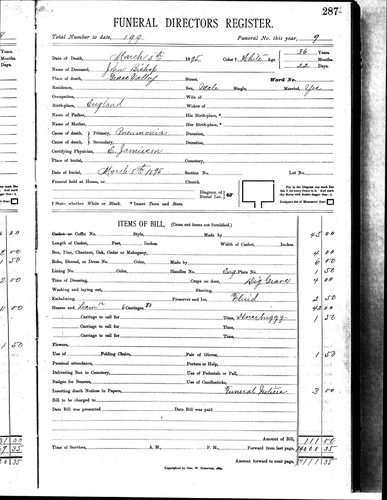 287
FUNERAL DIRECTORS REGISTER.
Total Number to date, 199 Funeral No. this year, 9
Date of Death, March 5th 1895 Color † White Age 36 Years. Months. 22 Days.
Name of Deceased, John Bishop
Place of death, Grass Valley Street, Ward No.
Residence, Sex, Male Single, Married, Yes
Occupation, Wife of
Birth-place, England Widow of
Name of Father, His Birth-place, *
Name of Mother, Her Birth-place, *
Cause of death, Primary, Pneumonia Duration,
Cause of death, Secondary, Duration,
Certifying Physician, C. Jamieson Residence,
Place of burial, Cemetery,
Date of burial, March 8th 1895 Section No. Lot No.
Funeral held at Home, Church,
Diagram of Burial Lot
† State whether White or Black. * Insert Town and State.
ITEMS OF BILL. (Cross out items not furnished.)
Casket or Coffin No. Style, Made by 45 00
Length of Casket, Feet, Inches. Width of Casket, Inches.
Box, Pine, Chestnut, Oak, Cedar or Mahogany, Made by 4 00
Robe, Shroud, or Dress No. Color, Made by 6 00
Lining No. Color, Handles No. Eng. Plate No. 1 50
Time of Dressing, Crape on door, Dig Grave 4 00
Washing and laying out, Shaving,
Embalming, Preserver and Ice, Fluid 2 50
Hearse and Team Carriages 42 00
Carriage to call for Time, 1 50
Carriage to call for Time,
Time,
Flowers,
Use of Folding Chairs, Pair of Gloves, 1 50
Personal attendance, Porters or Help,
Delivering Box to Cemetery, Use of Pedestals or Pall,
Badges for Bearers, Use of Candlesticks,
Inserting death Notices in Papers, Funeral Notices 3 00
Bill to be charged to
Date Bill was presented Date Bill was paid
Amount of Bill, 111 00
Time of Services, A. M., P. M., Forward from last page,
Amount forward to next page,